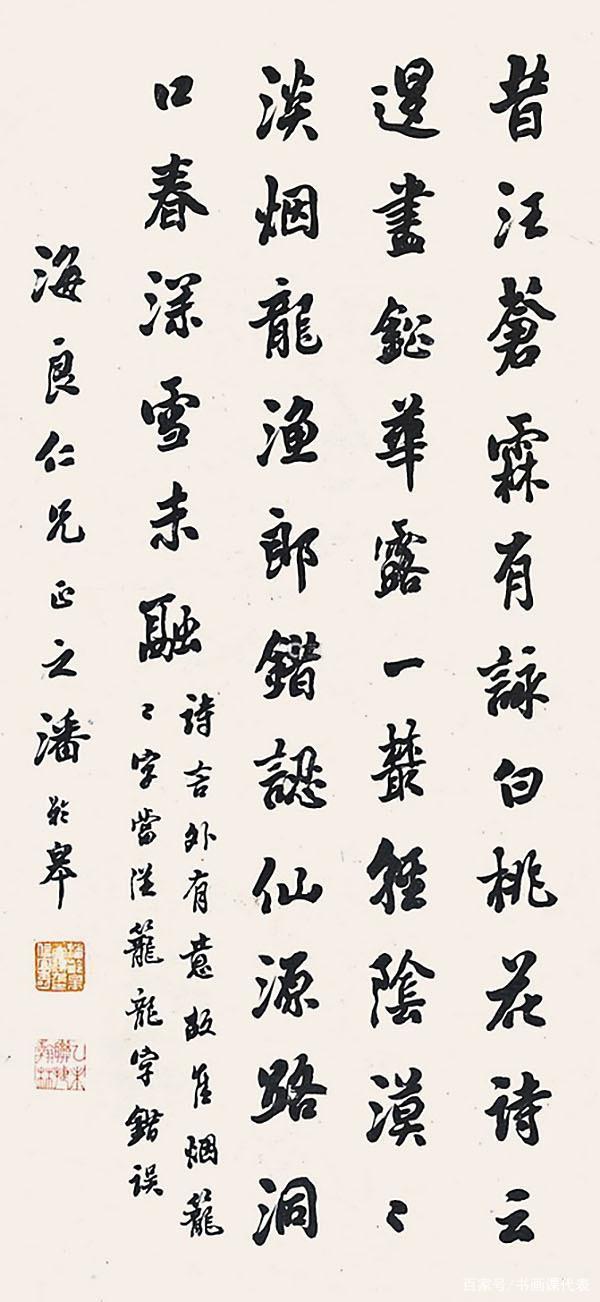 昔江蒼霖有詠白桃花詩云
退盡鉛華露一叢輕陰漠〻
淡烟龍渔郎錯認仙源路洞
口春深雪未融
詩言外有意故佳烟籠
〻字當從籠龍字錯誤
海良仁兄正之潘齡皋
乙未聯捷翰林
百家号/书画课代表